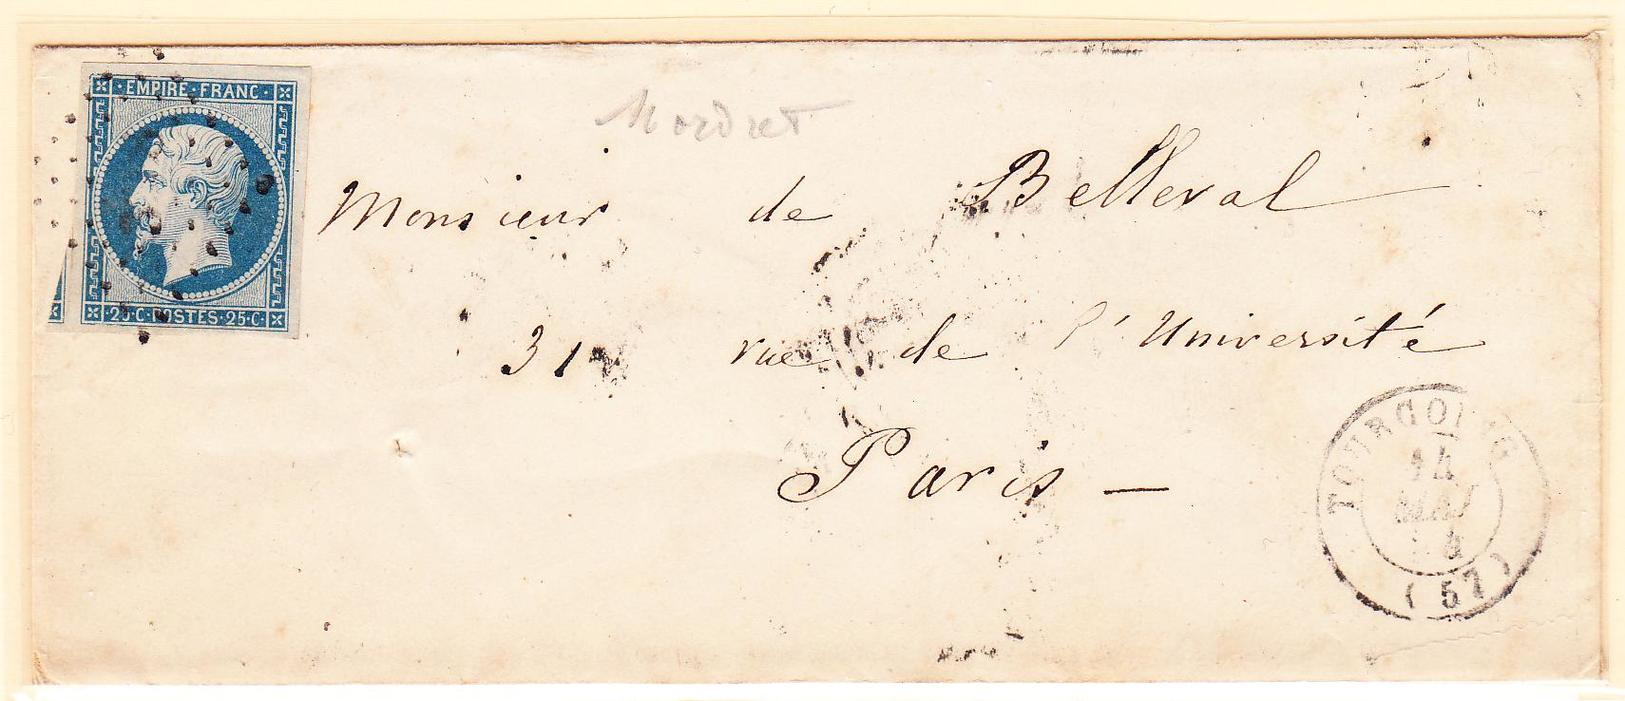 EMPIRE·FRANC·
25·C·POSTES·25·C·
Mordret
Monsieur de Belleval
31 rue de l'Université
Paris —
TOURCOING
14
MAI
4
(57)